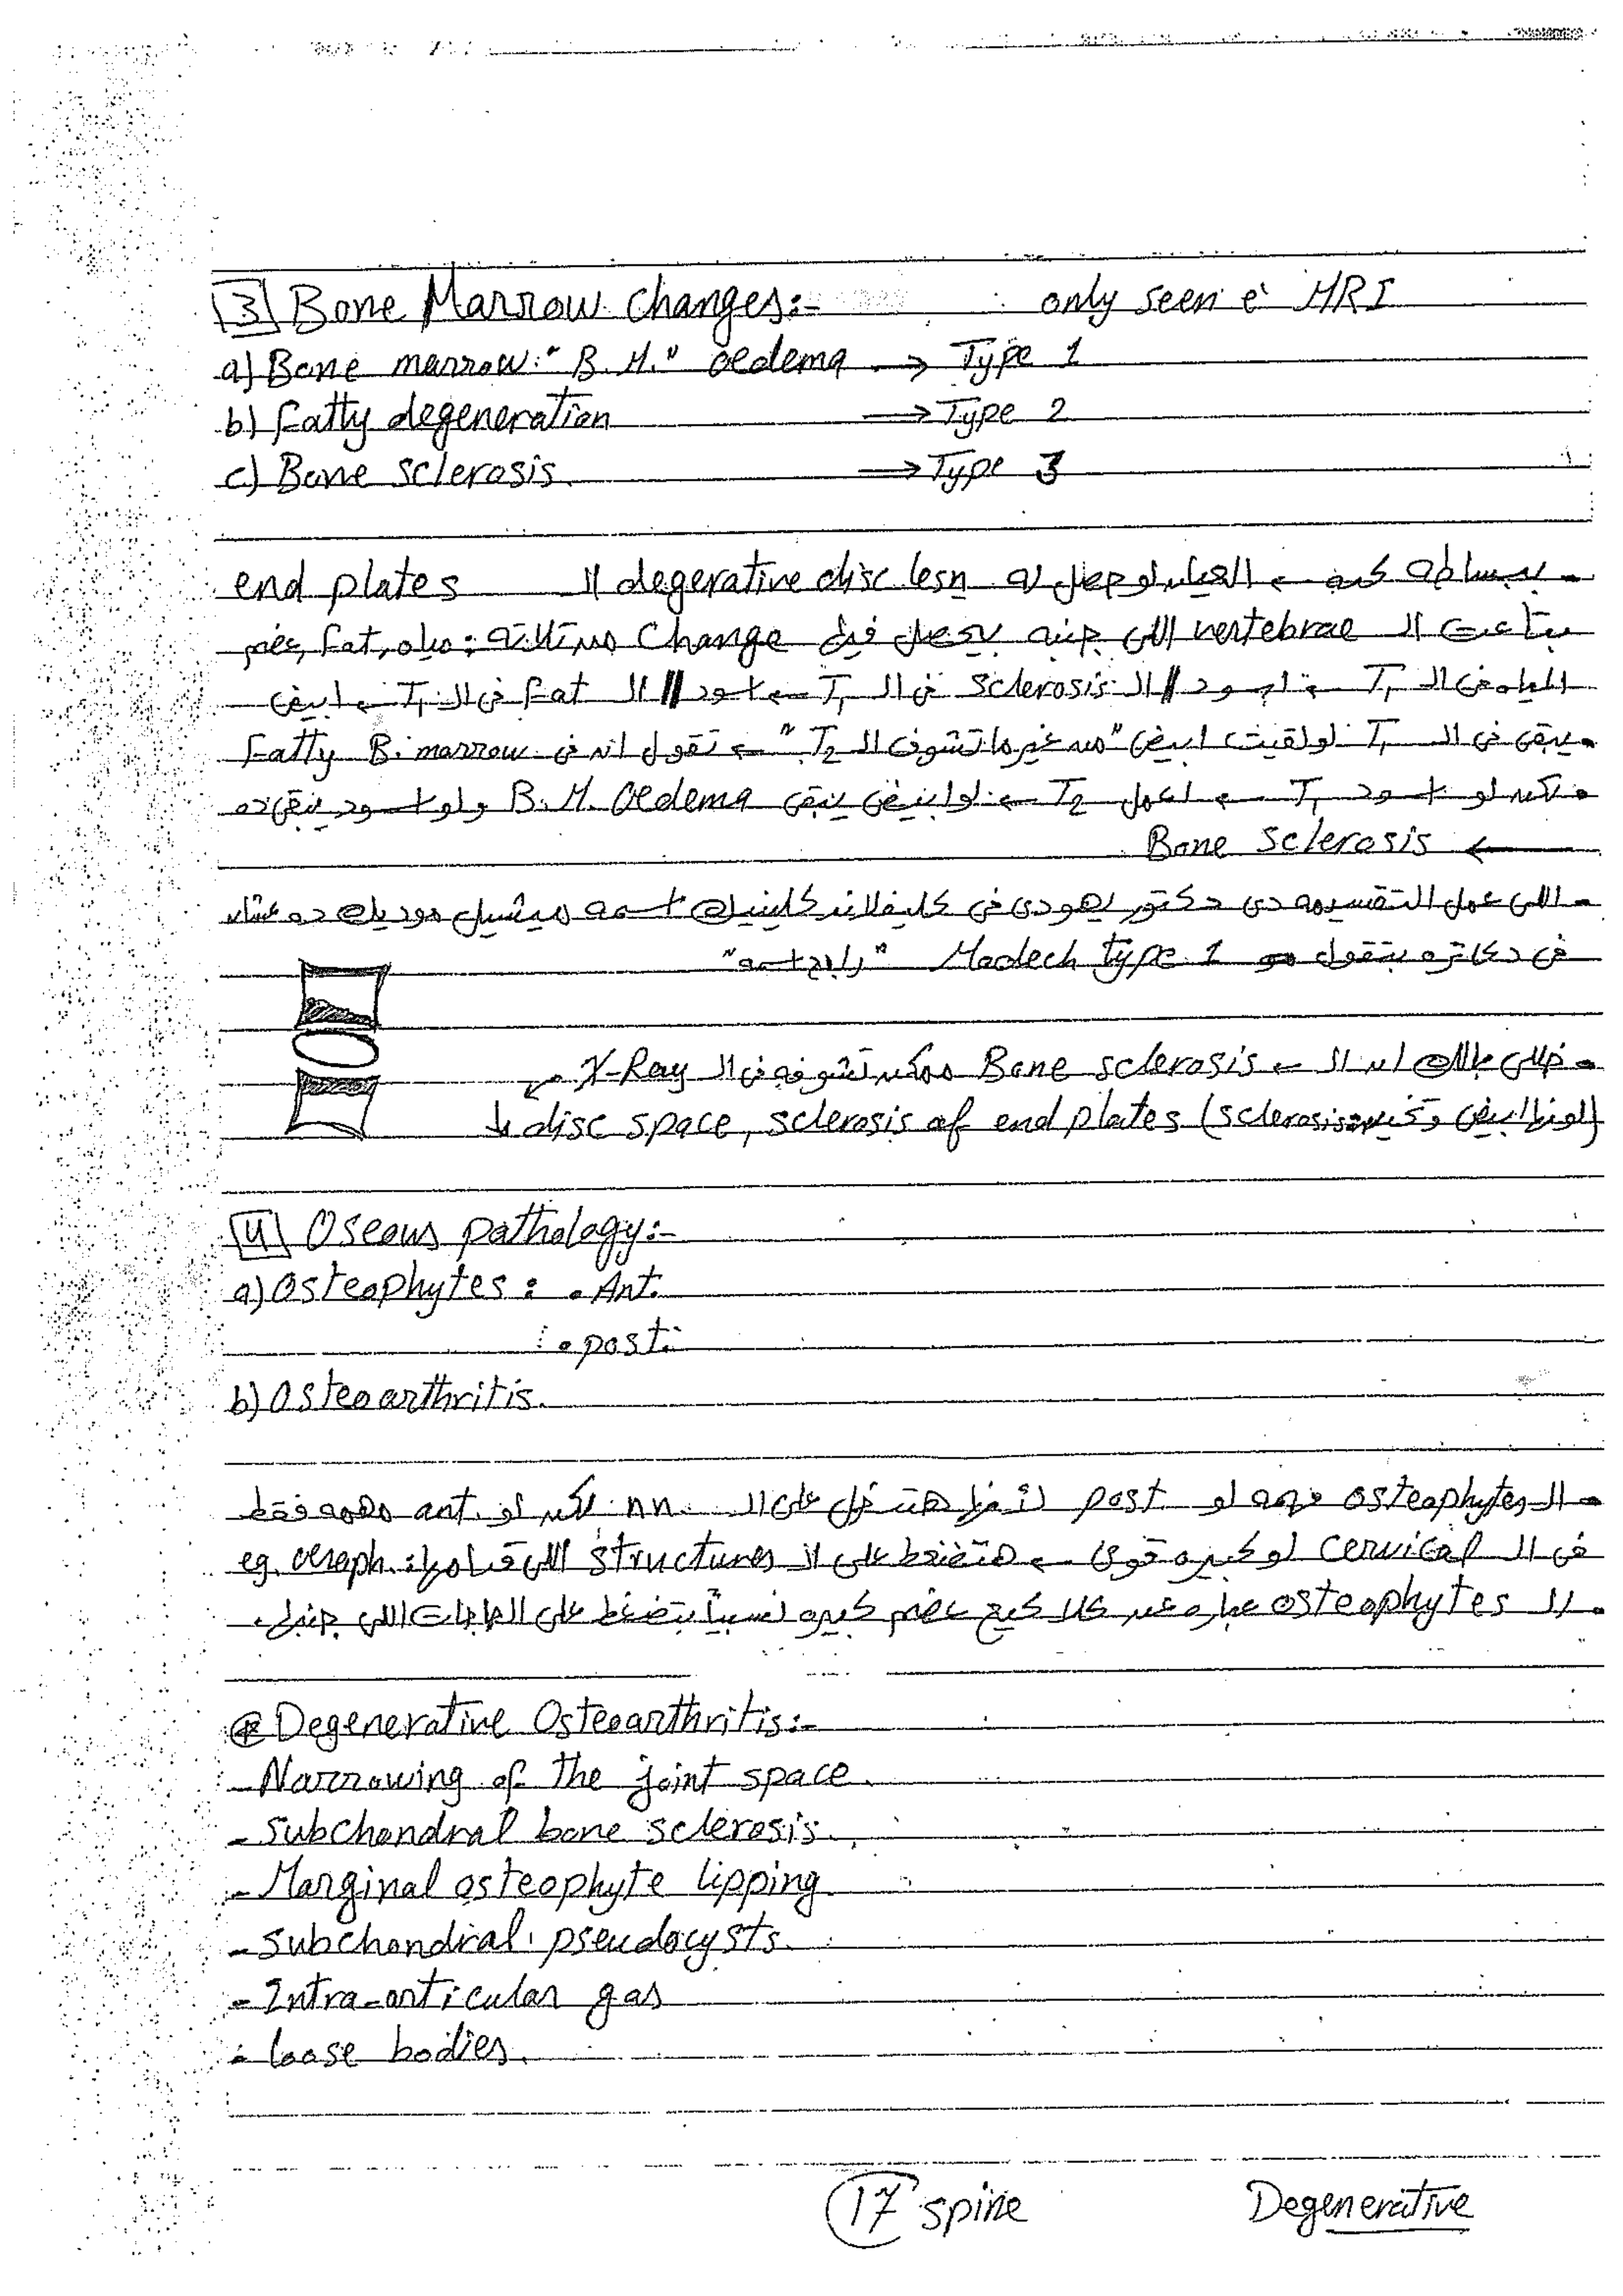 3 Bone Marrow changes:- only seen è MRI
a) Bone marrow "B.M." oedema → Type 1
b) Fatty degeneration → Type 2
c) Bone sclerosis → Type 3
- ببساطه كده ← العيان لو حصل له degerative disc lesn الـ end plates
بتاعت الـ vertebrae اللى جنبه بيحصل فيها change من تلاته: مياه, fat, عضم
المياه فى الـ T1 ← اسود // الـ sclerosis فى الـ T1 ← اسود // الـ Fat فى الـ T1 ← ابيض
- يبقى فى الـ T1 لو لقيت ابيض "من غير ما تشوف الـ T2" ← تقول انه فى Fatty B. marrow
لكن لو اسود T1 ← اعمل T2 ← لو ابيض يبقى B.M. Oedema ولو اسود يبقى ده
← Bone sclerosis
- اللى عمل التقسيمه دى دكتور يهودى فى كليفلاند كلينيك اسمه ميشيل موديك ده عشان
فى دكاتره بتقول Modech type 1 "رابح اسمه"
- خللى بالك ان الـ ← Bone sclerosis ممكن تشوفه فى الـ X-Ray
↓ disc space, sclerosis of end plates (sclerosis: لونها ابيض وتخين)
4 Oseous pathology:-
a) Osteophytes: • Ant.
• post.
b) Osteoarthritis.
- الـ osteophytes مهمه لو post لأنها هتدخل على الـ nn. لكن لو ant. مهمه فقط
فى الـ cervical لو كبيره قوى ← هتضغط على الـ structures اللى قدامها: eg. oesoph.
- الـ osteophytes عباره عن كلاكيع عضم كبيره نسبياً بتضغط على الحاجات اللى جنبها.
* Degenerative Osteoarthritis:-
- Narrowing of the joint space.
- subchondral bone sclerosis.
- Marginal osteophyte lipping
- subchondral pseudocysts.
- Intra-articular gas
- loose bodies.
17 spine Degenerative